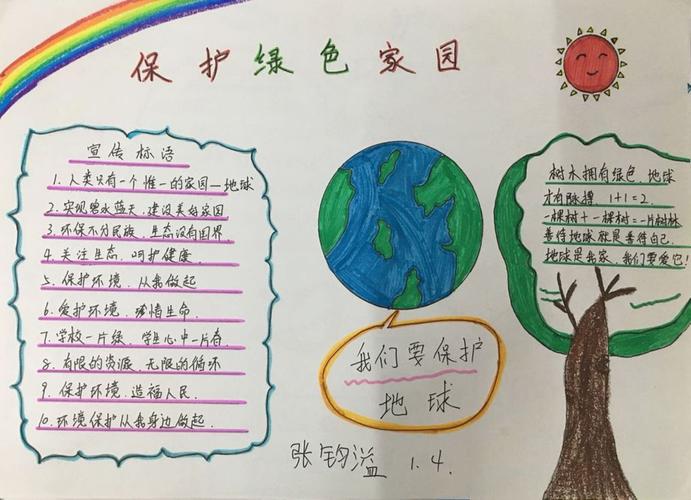 保护绿色家园
宣传标语
1. 人类只有一个惟一的家园—地球
2. 实现碧水蓝天,建设美好家园
3. 环保不分民族,生态没有国界.
4. 关注生态,呵护健康.
5. 保护环境,从我做起
6. 爱护环境,珍惜生命.
7. 学校一片绿,学生心中一片春.
8. 有限的资源,无限的循环
9. 保护环境,造福人民.
10. 环境保护从我身边做起.
我们要保护
地球
树木拥有绿色,地球
才有脉搏 1+1=2.
一棵树+一棵树=一片树林
善待地球就是善待自己.
地球是我家,我们要爱它!
张钧溢 1.4.